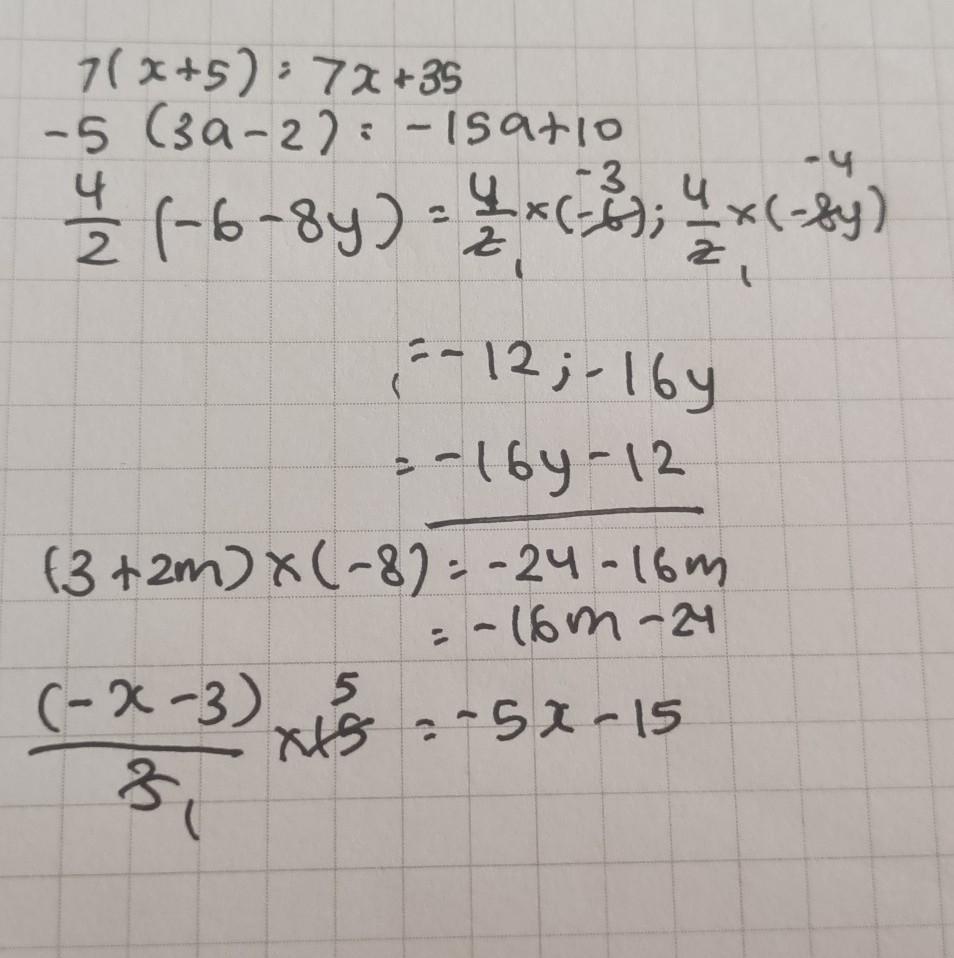 7(x+5) = 7x+35
-5 (3a-2) = -15a+10
4/2 (-6-8y) = 4/2 1 ×(-6 -3); 4/2 1 ×(-8y -4)
= -12; -16y
= -16y-12
(3+2m)×(-8) = -24-16m
= -16m-24
(-x-3)/3 1 ×15 5 = -5x-15